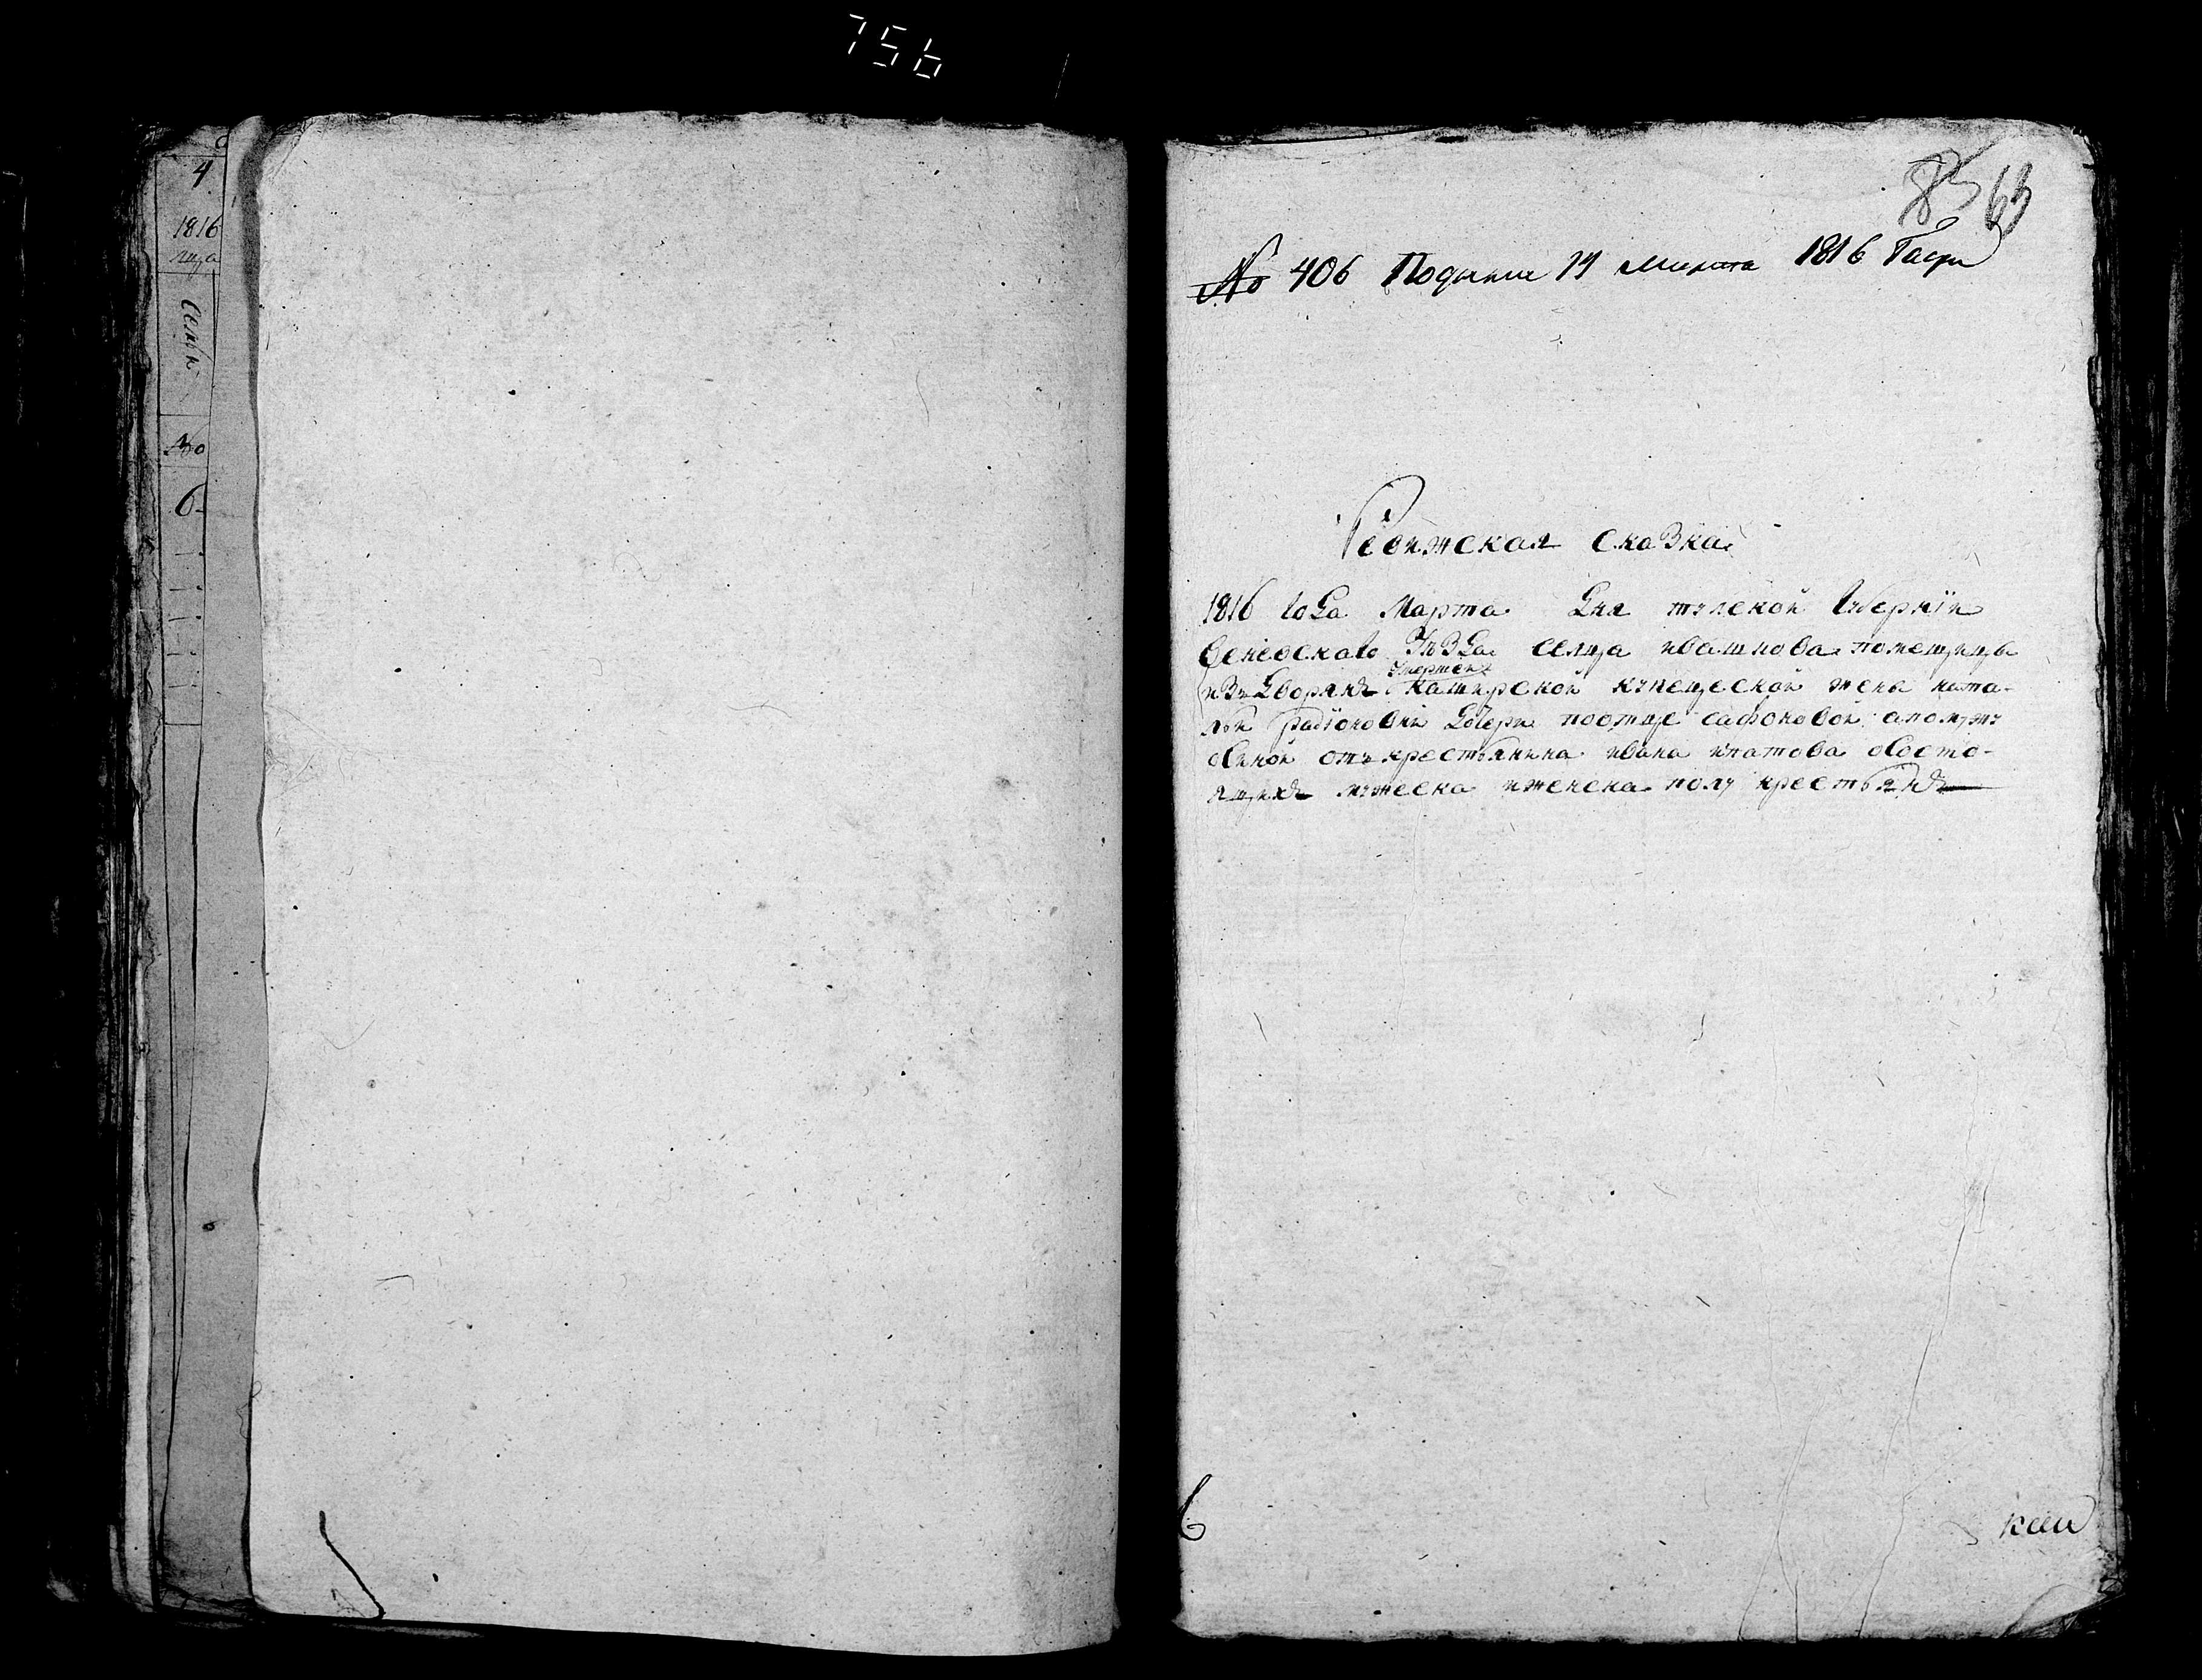 756
4
1816
лица
Семьи
№
6
83 63
№ 406 Подана 14 Марта 1816 Года
Ревижская сказка
1816 года Марта Дня тулской губернїи
веневскаго уезда селца ивашкова помещицы
умершей
изъ дворянъ каширской купеческой жены ната-
льи радїоновни дочери поотце сафоновой апомужу
отъ крестьянина ивана ипатова ососто-
ящихъ мужеска иженска полу крестьянъ
6